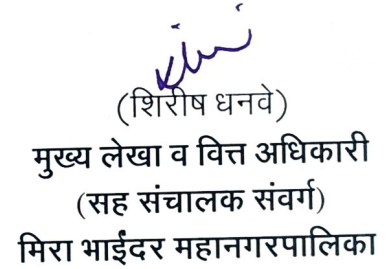 (शिरीष धनवे)
मुख्य लेखा व वित्त अधिकारी
(सह संचालक संवर्ग)
मिरा भाईंदर महानगरपालिका